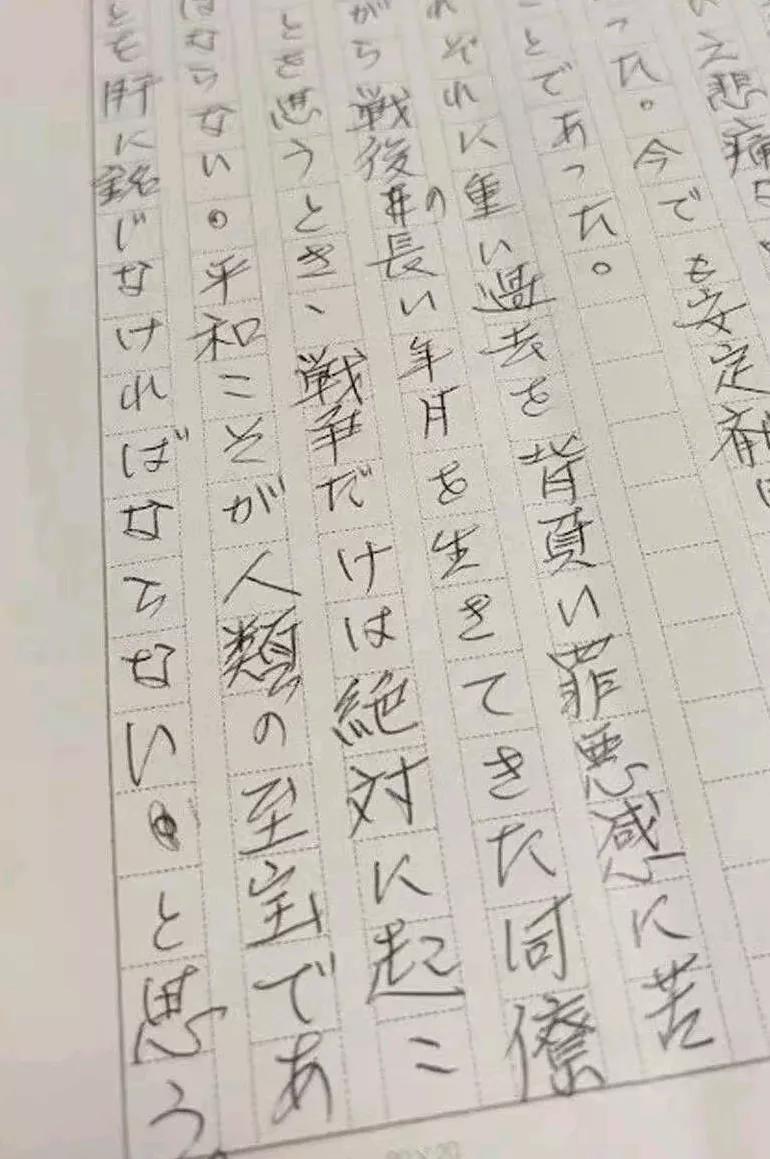 え悲痛
った。今でも安定剤
ことであった。
れぞれに重い過去を背負い罪悪感に苦
がら戦後の長い年月を生きてきた同僚
とを思うとき、戦争だけは絶対に起こ
はならない。平和こそが人類の至宝であ
とも肝に銘じなければならない。と思う。